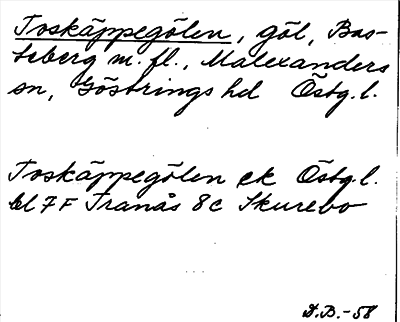 Toskäppegölen, göl, Bas-
teberg m. fl., Malexanders
sn, Göstrings hd Östg. l.
Toskäppegölen ek Östg. l.
bl 7 F Tranås 8 c Skurebo
D.B.-58